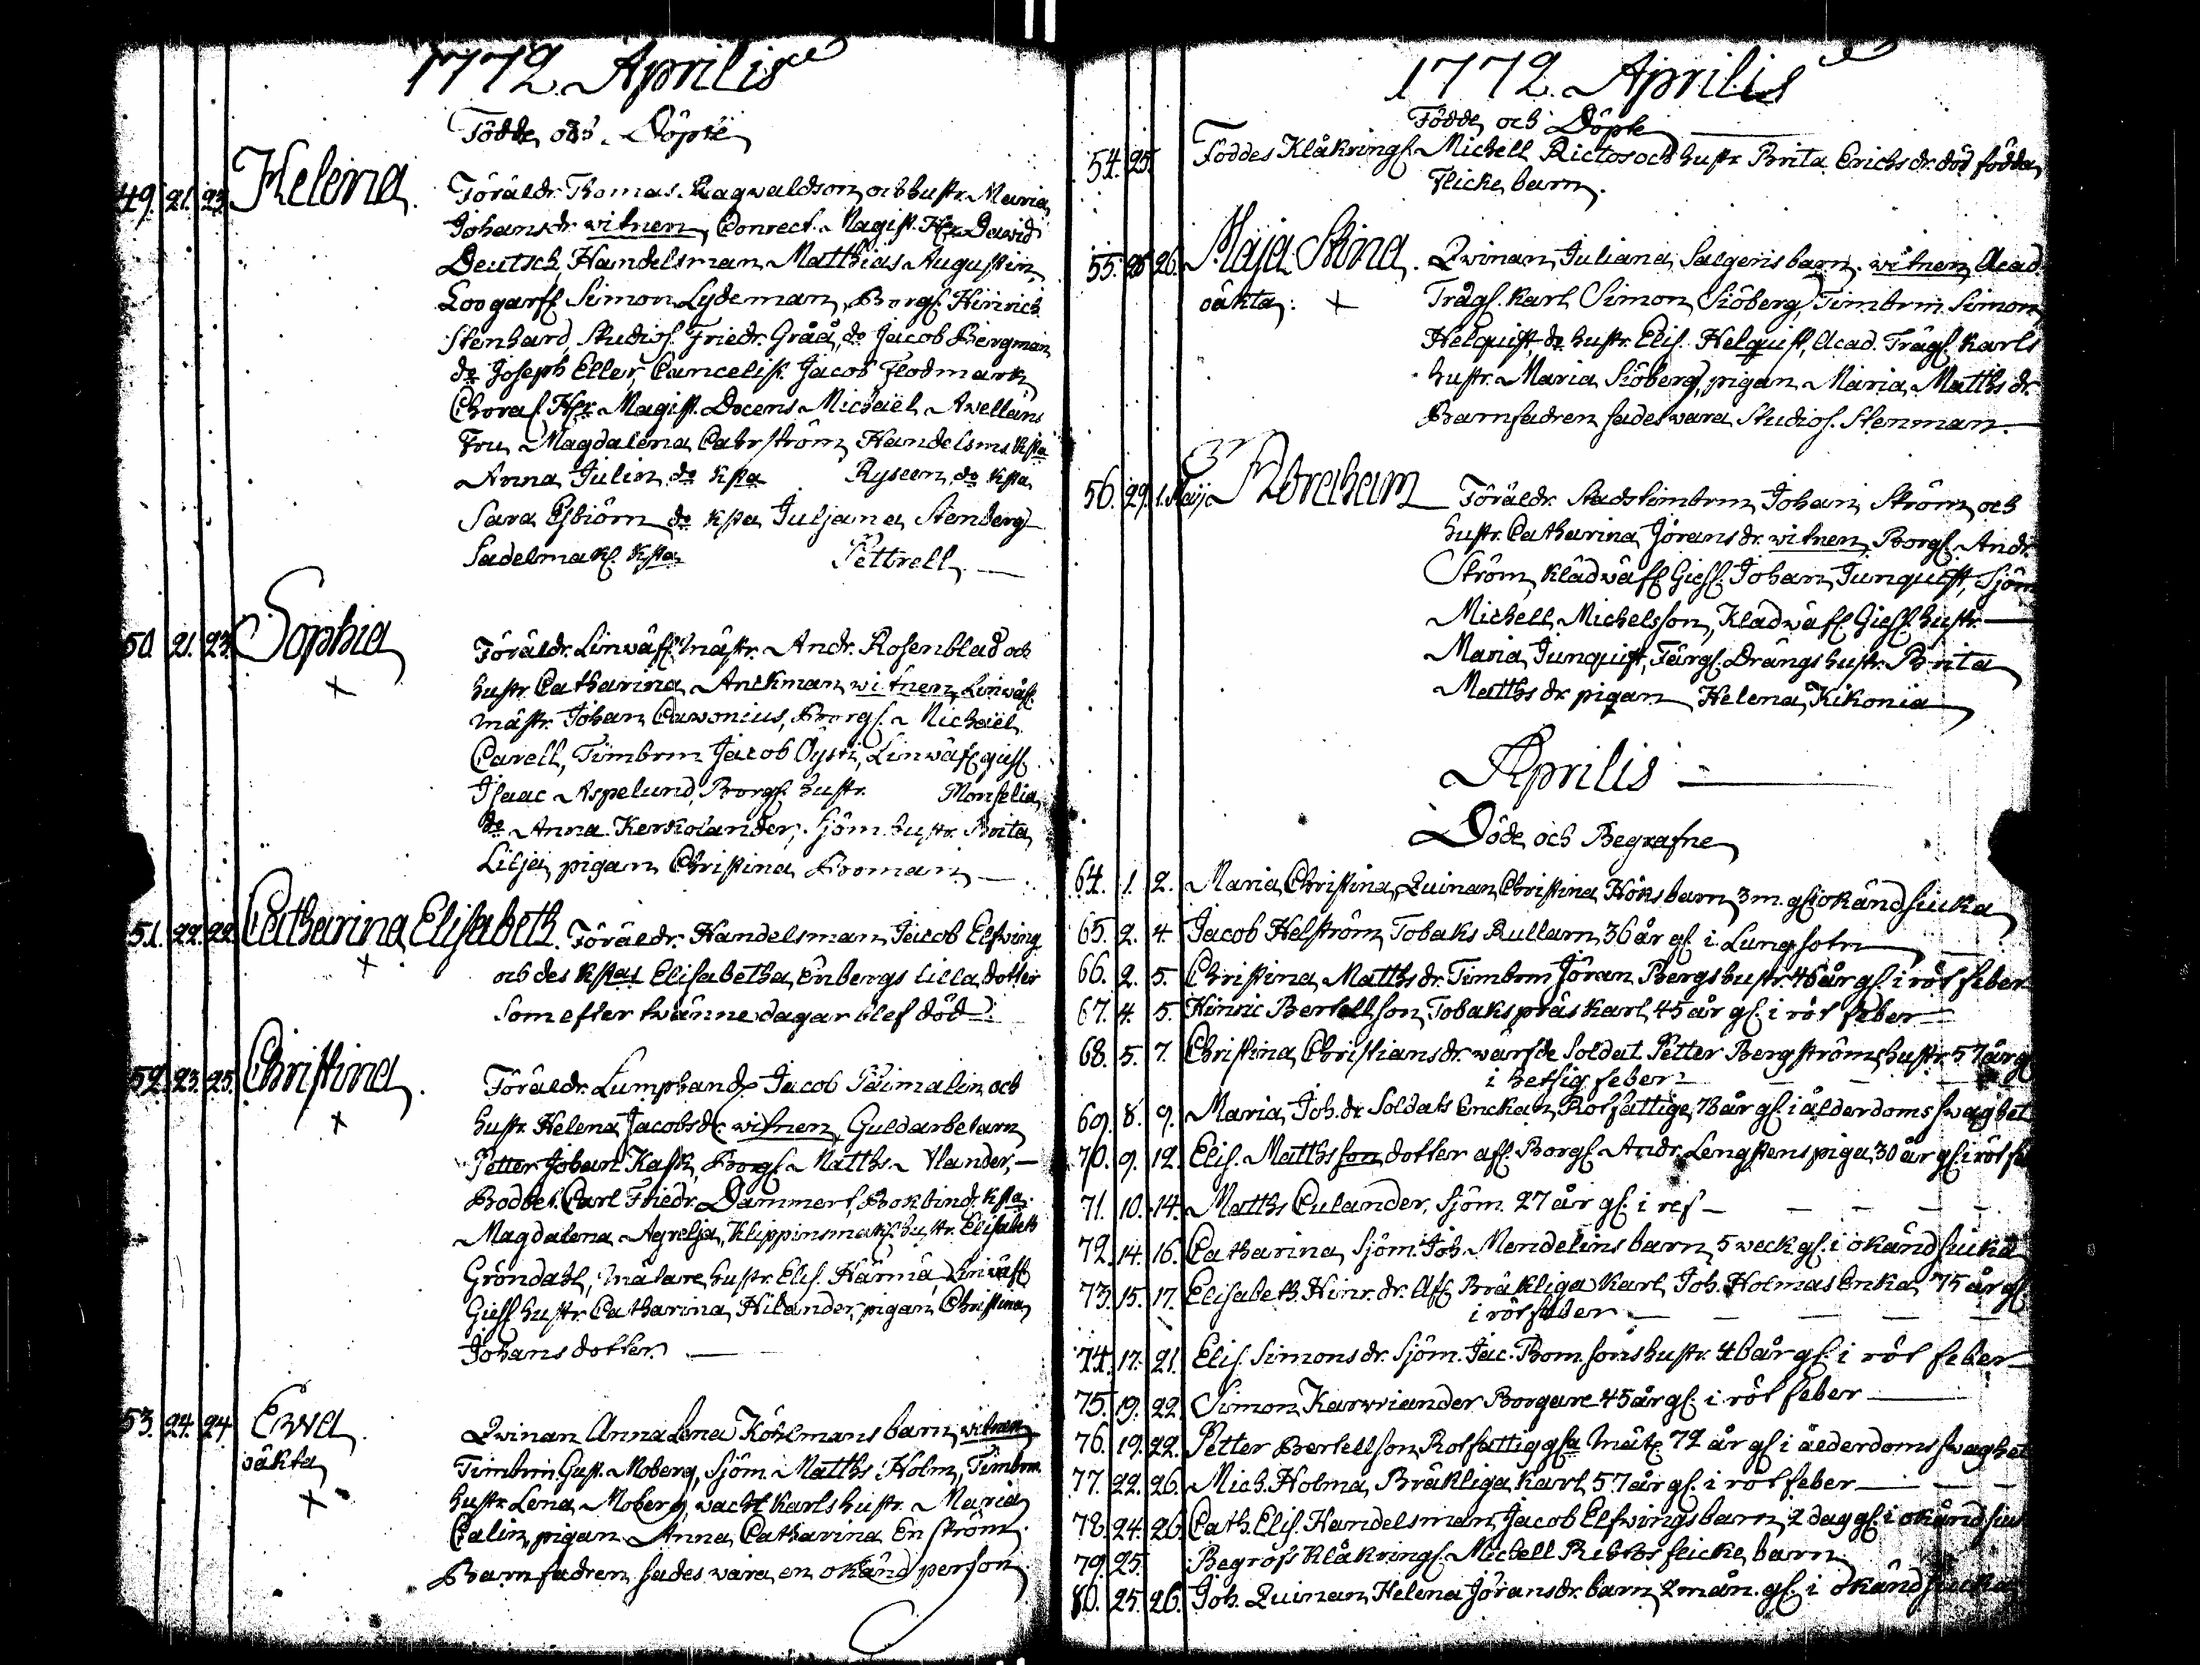 1772 Aprilis
Födde och Döpte
49. 21. 23. Helena. Föräldr. Thomas Ragwaldson och hustr. Maria
Johansdr. witnen, Conrect. Magist. Hr David
Deutsch, Handelsman Matthias Augustin,
Simon Lydeman, Borgs. Hinrich
Stenhard Studios. Friedr. Gråå, do Jacob Bergman
do Joseph Eller, Cancelist. Jacob Flodmark
Hr. Magist. Docens Michaël Avellans
Fru Magdalena Cahrström Handelsms. Ksta
Anna Julin, do Ksta Ryseen, do Ksta
Sara Esbiörn do Ksta Juljana Stenberg
Sadelmaks. Ksta Pettrell. —
50. 21. 23. Sophia Föräldr. Linwäf. mästr. Andr. Rosenblad och
hustr. Catharina Anckman witnen, Linwäf.
mästr. Johan Cawonius, Borgs. Michaël
Carell, Timbrm Jacob Öysti, Linwäf. gies.
Isaac Aspelund, Borgs. hustr. Monselia,
do Anna Kerkolander, Sjöm. hustr. Brita
Lilja, pigan Christina Froman. —
51. 22. 22. Catharina Elisabeth. Föräldr. Handelsman Jacob Elfving
och des Kstas Elisabetha Enbergs lilla dotter
Som efter twänne dagar blef död.
52. 23. 25. Christina. Föräldr. Lumphandr. Jacob Päimalin och
hustr. Helena Jacobsdr. witnen, Guldarbetarn
Petter Johan Kask, Borgs. Matths. Ulander, —
Carl Friedr. Dammert, Bokbindr. Ksta.
Magdalena Agrelja, Klippinsmaks. hustr. Elisabeth
Gröndahl, Mälare hustr. Elis. Härmä, Linwäf.
Gies. hustr. Catharina Hilander, pigan Christina
Johans dotter. —
53. 24. 24. Ewa Qwinan Anna Lena Köhlmans barn, witnen
oäkta Timbrm Gust. Moberg, Sjöm. Matths Holm, Timbrm
hustr. Lena Moberg, wacht Karls hustr. Maria
Calin, pigan Anna Catharina Enström.
Barnfadren sades wara en okänd person.
1772. Aprilis
Födde och Döpte
54. 25. Föddes Klåkrings. Michell Rictos och hustr. Brita Erichsdr. död födda
Flicke barn.
55. 26. 26. Maja Stina. Qwinan Juliana Salgens barn. witnen Acad.
oäkta. Trägs. Karl Simon Siöberg, Timbrm. Simon
Helquist, do hustr. Elis. Helquist, Acad. Trägs. Karls
hustr. Maria Siöberg, pigan Maria Matthsdr.
Barnfadren sades wara Studios. Stenman.
56. 29. 1. Maij. Abraham Föräldr. Stadstimbrm Johan Ström och
hustr. Catharina Jöransdr. witnen, Borgs. Andr.
Ström, Klädwäf. Gies. Johan Junquist, Sjöm
Michell Michelsson, Klädwäf. Gies. hustr. —
Maria Junquist, Färgs. Drängs hustr. Brita
Matthsdr pigan Helena Kikonia
Aprilis —
Döde och Begrafne
64. 1. 2. Maria Christina, Quinan Christina Höks barn 3 m. gl. i okänd siucka
65. 2. 4. Jacob Helström Tobaks Rullarn 36 år gl. i Lungsotn
66. 2. 5. Christina Matthsdr. Timbrm Jöran Bergs hustr. 46 år gl. i röt feber
67. 4. 5. Hinric Bertellson Tobaks präs Karl, 45 år gl. i röt feber —
68. 5. 7. Christina Christiansdr. warfde Soldat Petter Bergströms hustr. 57 år gl
i hetsig feber —
69. 8. 9. Maria Joh. dr Soldats Enckan, Rotfattige, 78 år gl. i ålderdoms swaghet
70. 9. 12. Elis. Matths son dotter aff. Borgs. Andr. Lengstens piga 30 år gl. i röt fe
71. 10. 14. Matths Culander, Sjöm. 27 år gl. i ref —
72. 14. 16. Catharina, Sjöm. Joh. Mendelins barn, 5 weck gl. i okänd siucka
73. 15. 17. Elisabeth Hinr. dr. Aff. Bräkliga Karl Joh. Holmas Enka 75 år gl.
i röt feber —
74. 17. 21. Elis. Simonsdr. Sjöm. Jac. Thomsons hustr. 46 år gl. i röt feber
75. 19. 22. Simon Karwiander Borgare 45 år gl. i röt feber —
76. 19. 22. Petter Bertellson, Rotfattig 72 år gl. i ålderdoms swaghet
77. 22. 26. Mich. Holma, Bräkliga Karl, 57 år gl. i röt feber —
78. 24. 26. Cath. Elis. Handelsman Jacob Elfwings barn, 2 dag gl. i okänd siu
79. 25. Begrofs Klåkrings. Michell Rictos flicke barn
80. 25. 26. Joh. Quinan Helena Jöransdr. barn 2 mån. gl. i okänd siucka